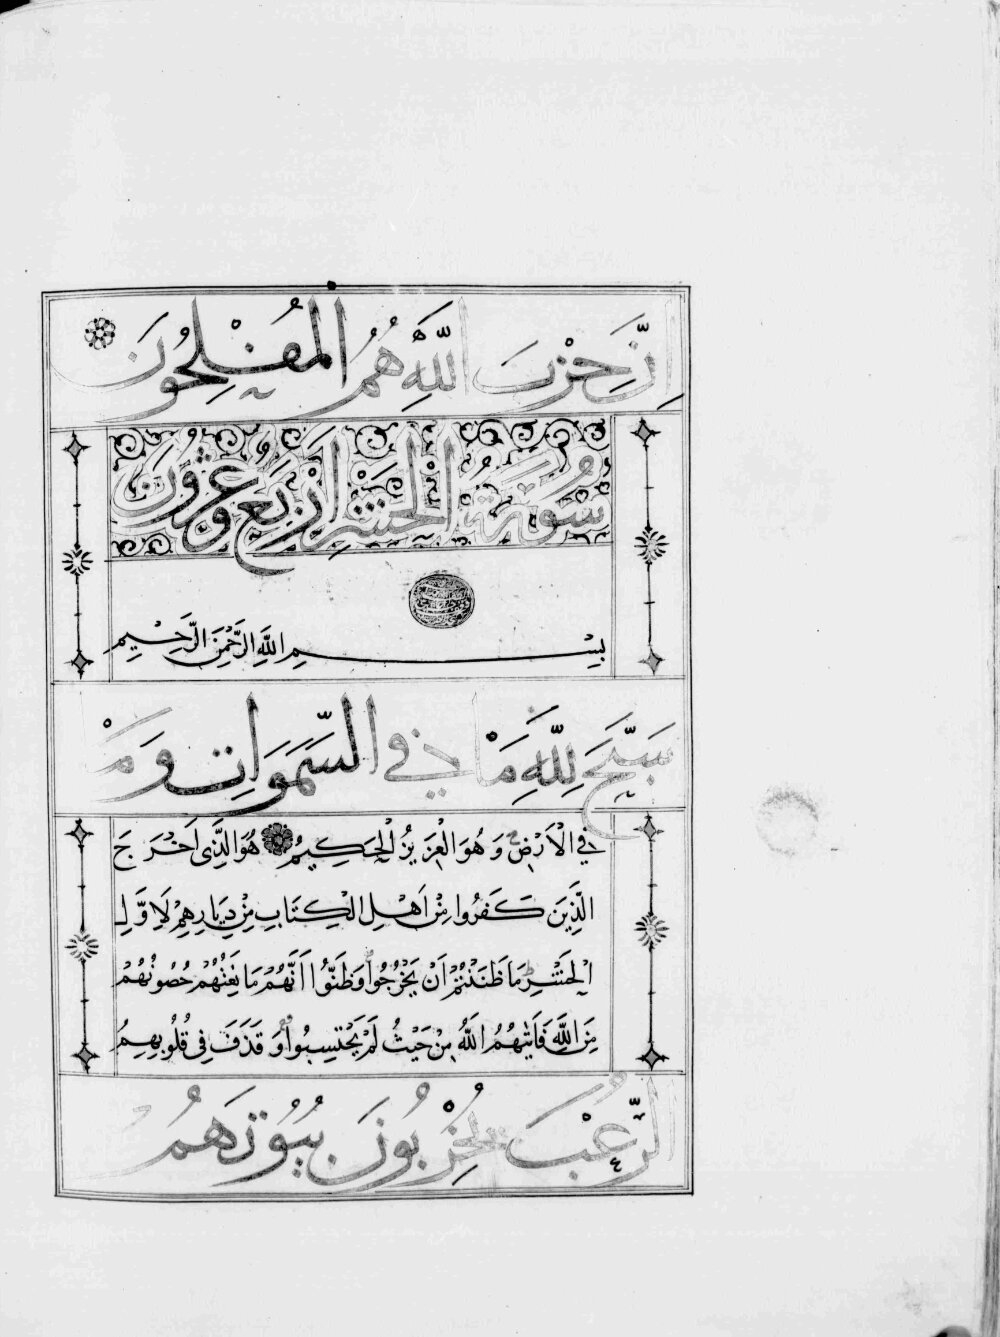 اِنَّ حِزْبَ اللّٰهِ هُمُ الْمُفْلِحُونَ
سُورَةُ الْحَشْرِ اَرْبَعٌ وَعِشْرُونَ
بِسْمِ اللّٰهِ الرَّحْمٰنِ الرَّحِيمِ
سَبَّحَ لِلّٰهِ مَا فِي السَّمٰوَاتِ وَمَا
فِي الْاَرْضِ وَهُوَ الْعَزِيزُ الْحَكِيمُ هُوَ الَّذِى اَخْرَجَ
الَّذِينَ كَفَرُوا مِنْ اَهْلِ الْكِتَابِ مِنْ دِيَارِهِمْ لِاَوَّلِ
الْحَشْرِ مَا ظَنَنْتُمْ اَنْ يَخْرُجُوا وَظَنُّوا اَنَّهُمْ مَانِعَتُهُمْ حُصُونُهُمْ
مِنَ اللّٰهِ فَاَتٰيهُمُ اللّٰهُ مِنْ حَيْثُ لَمْ يَحْتَسِبُوا وَقَذَفَ فِى قُلُوبِهِمُ
الرُّعْبَ يُخْرِبُونَ بُيُوتَهُمْ